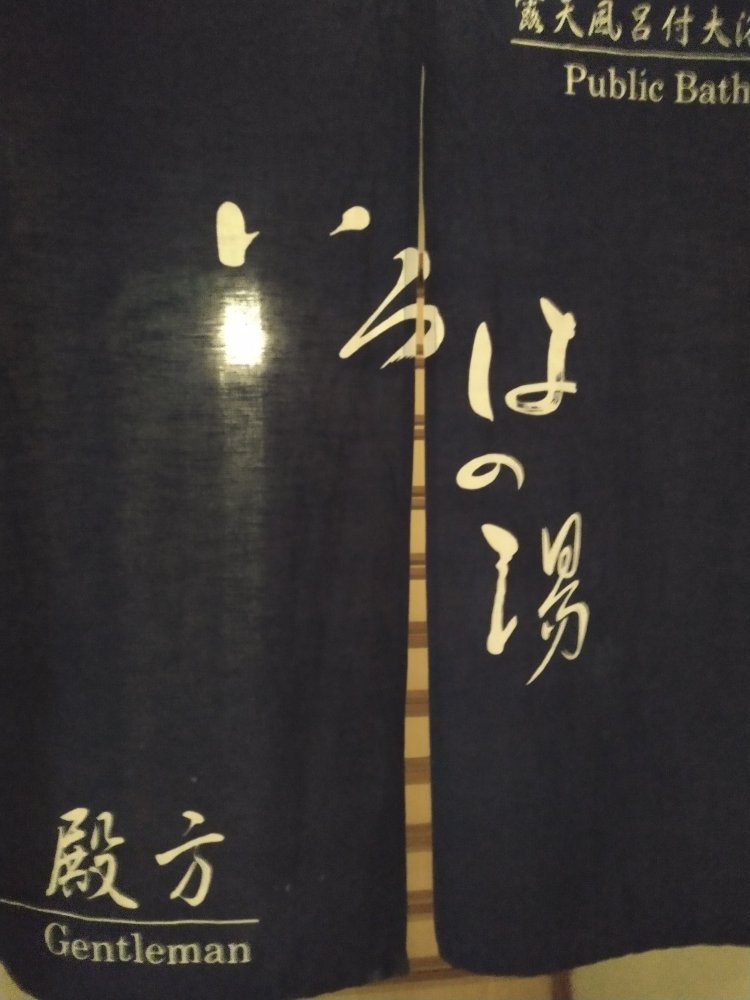 露天風呂付大浴
Public Bath
いろはの湯
殿方
Gentleman